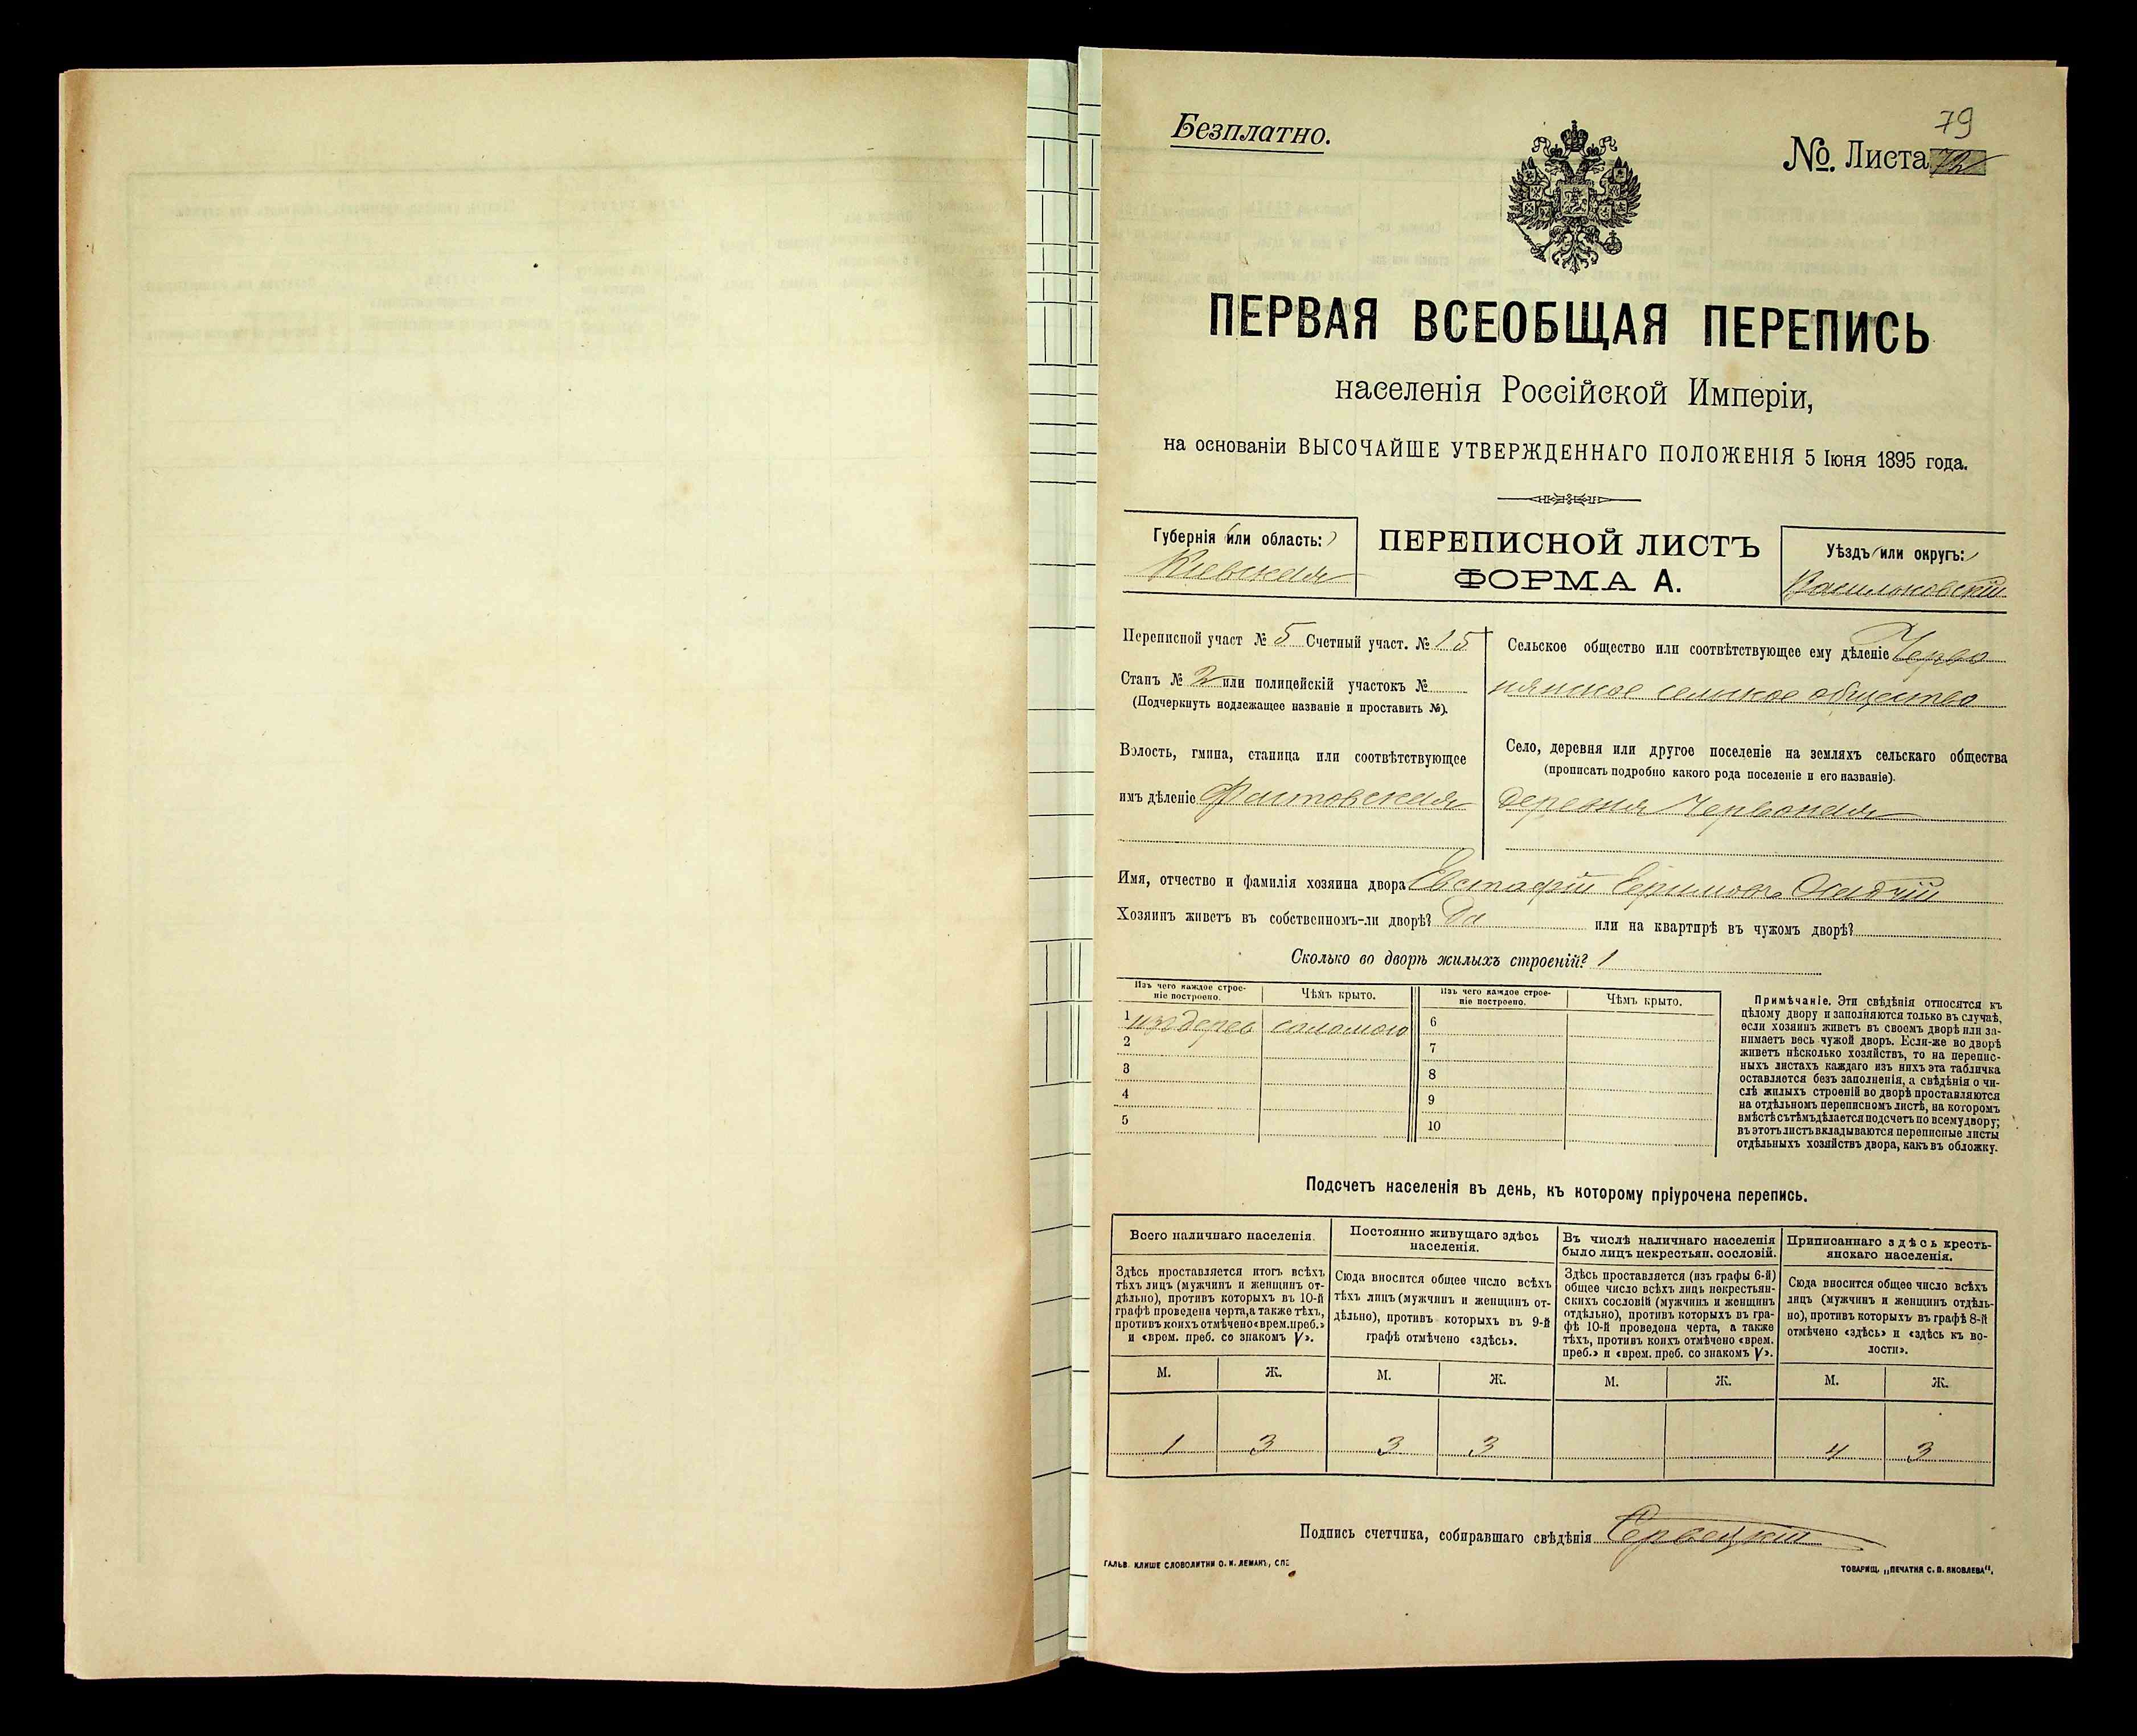 79
Безплатно.
№. Листа
ПЕРВАЯ ВСЕОБЩАЯ ПЕРЕПИСЬ
населенія Россійской Имперіи,
на основаніи ВЫСОЧАЙШЕ УТВЕРЖДЕННАГО ПОЛОЖЕНІЯ 5 Іюня 1895 года.
Губернія (или область:)
Кіевская
ПЕРЕПИСНОЙ ЛИСТЪ
ФОРМА А.
Уѣздъ (или округъ:)
Васильковскій
Переписной участ № 5 Счетный участ. № 15
Станъ № 2 или полицейскій участокъ №
(Подчеркнуть подлежащее названіе и проставить №).
Волость, гмина, станица или соотвѣтствующее
имъ дѣленіе Фастовская
Сельское общество или соотвѣтствующее ему дѣленіе Черво
нянское сельское общество
Село, деревня или другое поселеніе на земляхъ сельскаго общества
(прописать подробно какого рода поселеніе и его названіе).
деревня Червоная
Имя, отчество и фамилія хозяина двора Евстафій
Хозяинъ живетъ въ собственномъ-ли дворѣ? Да или на квартирѣ въ чужомъ дворѣ?
Сколько во дворѣ жилыхъ строеній? 1
Изъ чего каждое строе-
ніе построено.
Чѣмъ крыто.
Изъ чего каждое строе-
ніе построено.
Чѣмъ крыто.
1 изъ дерев соломою 6
2 7
3 8
4 9
5 10
Примѣчаніе. Эти свѣдѣнія относятся къ
цѣлому двору и заполняются только въ случаѣ,
если хозяинъ живетъ въ своемъ дворѣ или за-
нимаетъ весь чужой дворъ. Если-же во дворѣ
живетъ нѣсколько хозяйствъ, то на перепис-
ныхъ листахъ каждаго изъ нихъ эта табличка
оставляется безъ заполненія, а свѣдѣнія о чи-
слѣ жилыхъ строеній во дворѣ проставляются
на отдѣльномъ переписномъ листѣ, на которомъ
вмѣстѣ съ тѣмъ дѣлается подсчетъ по всему двору;
въ этотъ листъ вкладываются переписные листы
отдѣльныхъ хозяйствъ двора, какъ въ обложку.
Подсчетъ населенія въ день, къ которому пріурочена перепись.
Всего наличнаго населенія.
Здѣсь проставляется итогъ всѣхъ
тѣхъ лицъ (мужчинъ и женщинъ от-
дѣльно), противъ которыхъ въ 10-й
графѣ проведена черта, а также тѣхъ,
противъ коихъ отмѣчено «врем. преб.»
и «врем. преб. со знакомъ V».
М. Ж.
1 3
Постоянно живущаго здѣсь
населенія.
Сюда вносится общее число всѣхъ
тѣхъ лицъ (мужчинъ и женщинъ от-
дѣльно), противъ которыхъ въ 9-й
графѣ отмѣчено «здѣсь».
М. Ж.
3 3
Въ числѣ наличнаго населенія
было лицъ некрестьян. сословій.
Здѣсь проставляется (изъ графы 6-й)
общее число всѣхъ лицъ некрестьян-
скихъ сословій (мужчинъ и женщинъ
отдѣльно), противъ которыхъ въ гра-
фѣ 10-й проведена черта, а также
тѣхъ, противъ коихъ отмѣчено «врем.
преб.» и «врем. преб. со знакомъ V».
М. Ж.
Приписаннаго здѣсь кресть-
янскаго населенія.
Сюда вносится общее число всѣхъ
лицъ (мужчинъ и женщинъ отдѣль-
но), противъ которыхъ въ графѣ 8-й
отмѣчено «здѣсь» и «здѣсь къ во-
лости».
М. Ж.
4 3
Подпись счетчика, собиравшаго свѣдѣнія
ГАЛЬВ. КЛИШЕ СЛОВОЛИТНИ О. И. ЛЕМАНЪ, СПБ
ТОВАРИЩ. „ПЕЧАТНЯ С. П. ЯКОВЛЕВА“.